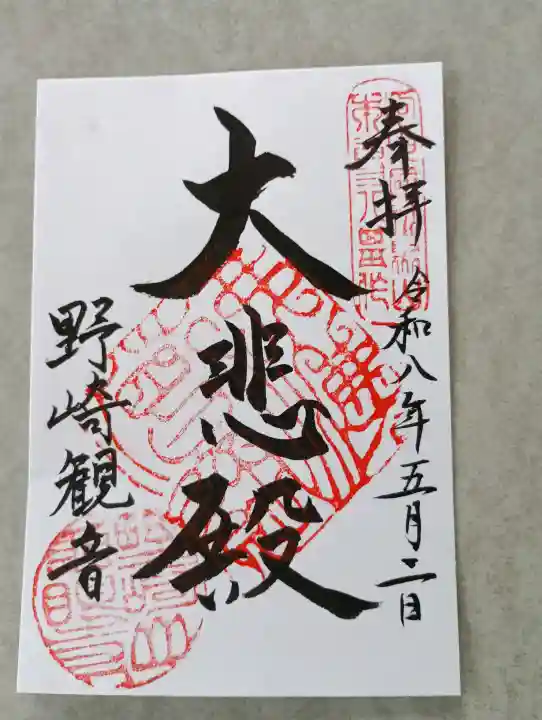 奉拝 令和八年五月二日
大悲殿
野崎観音